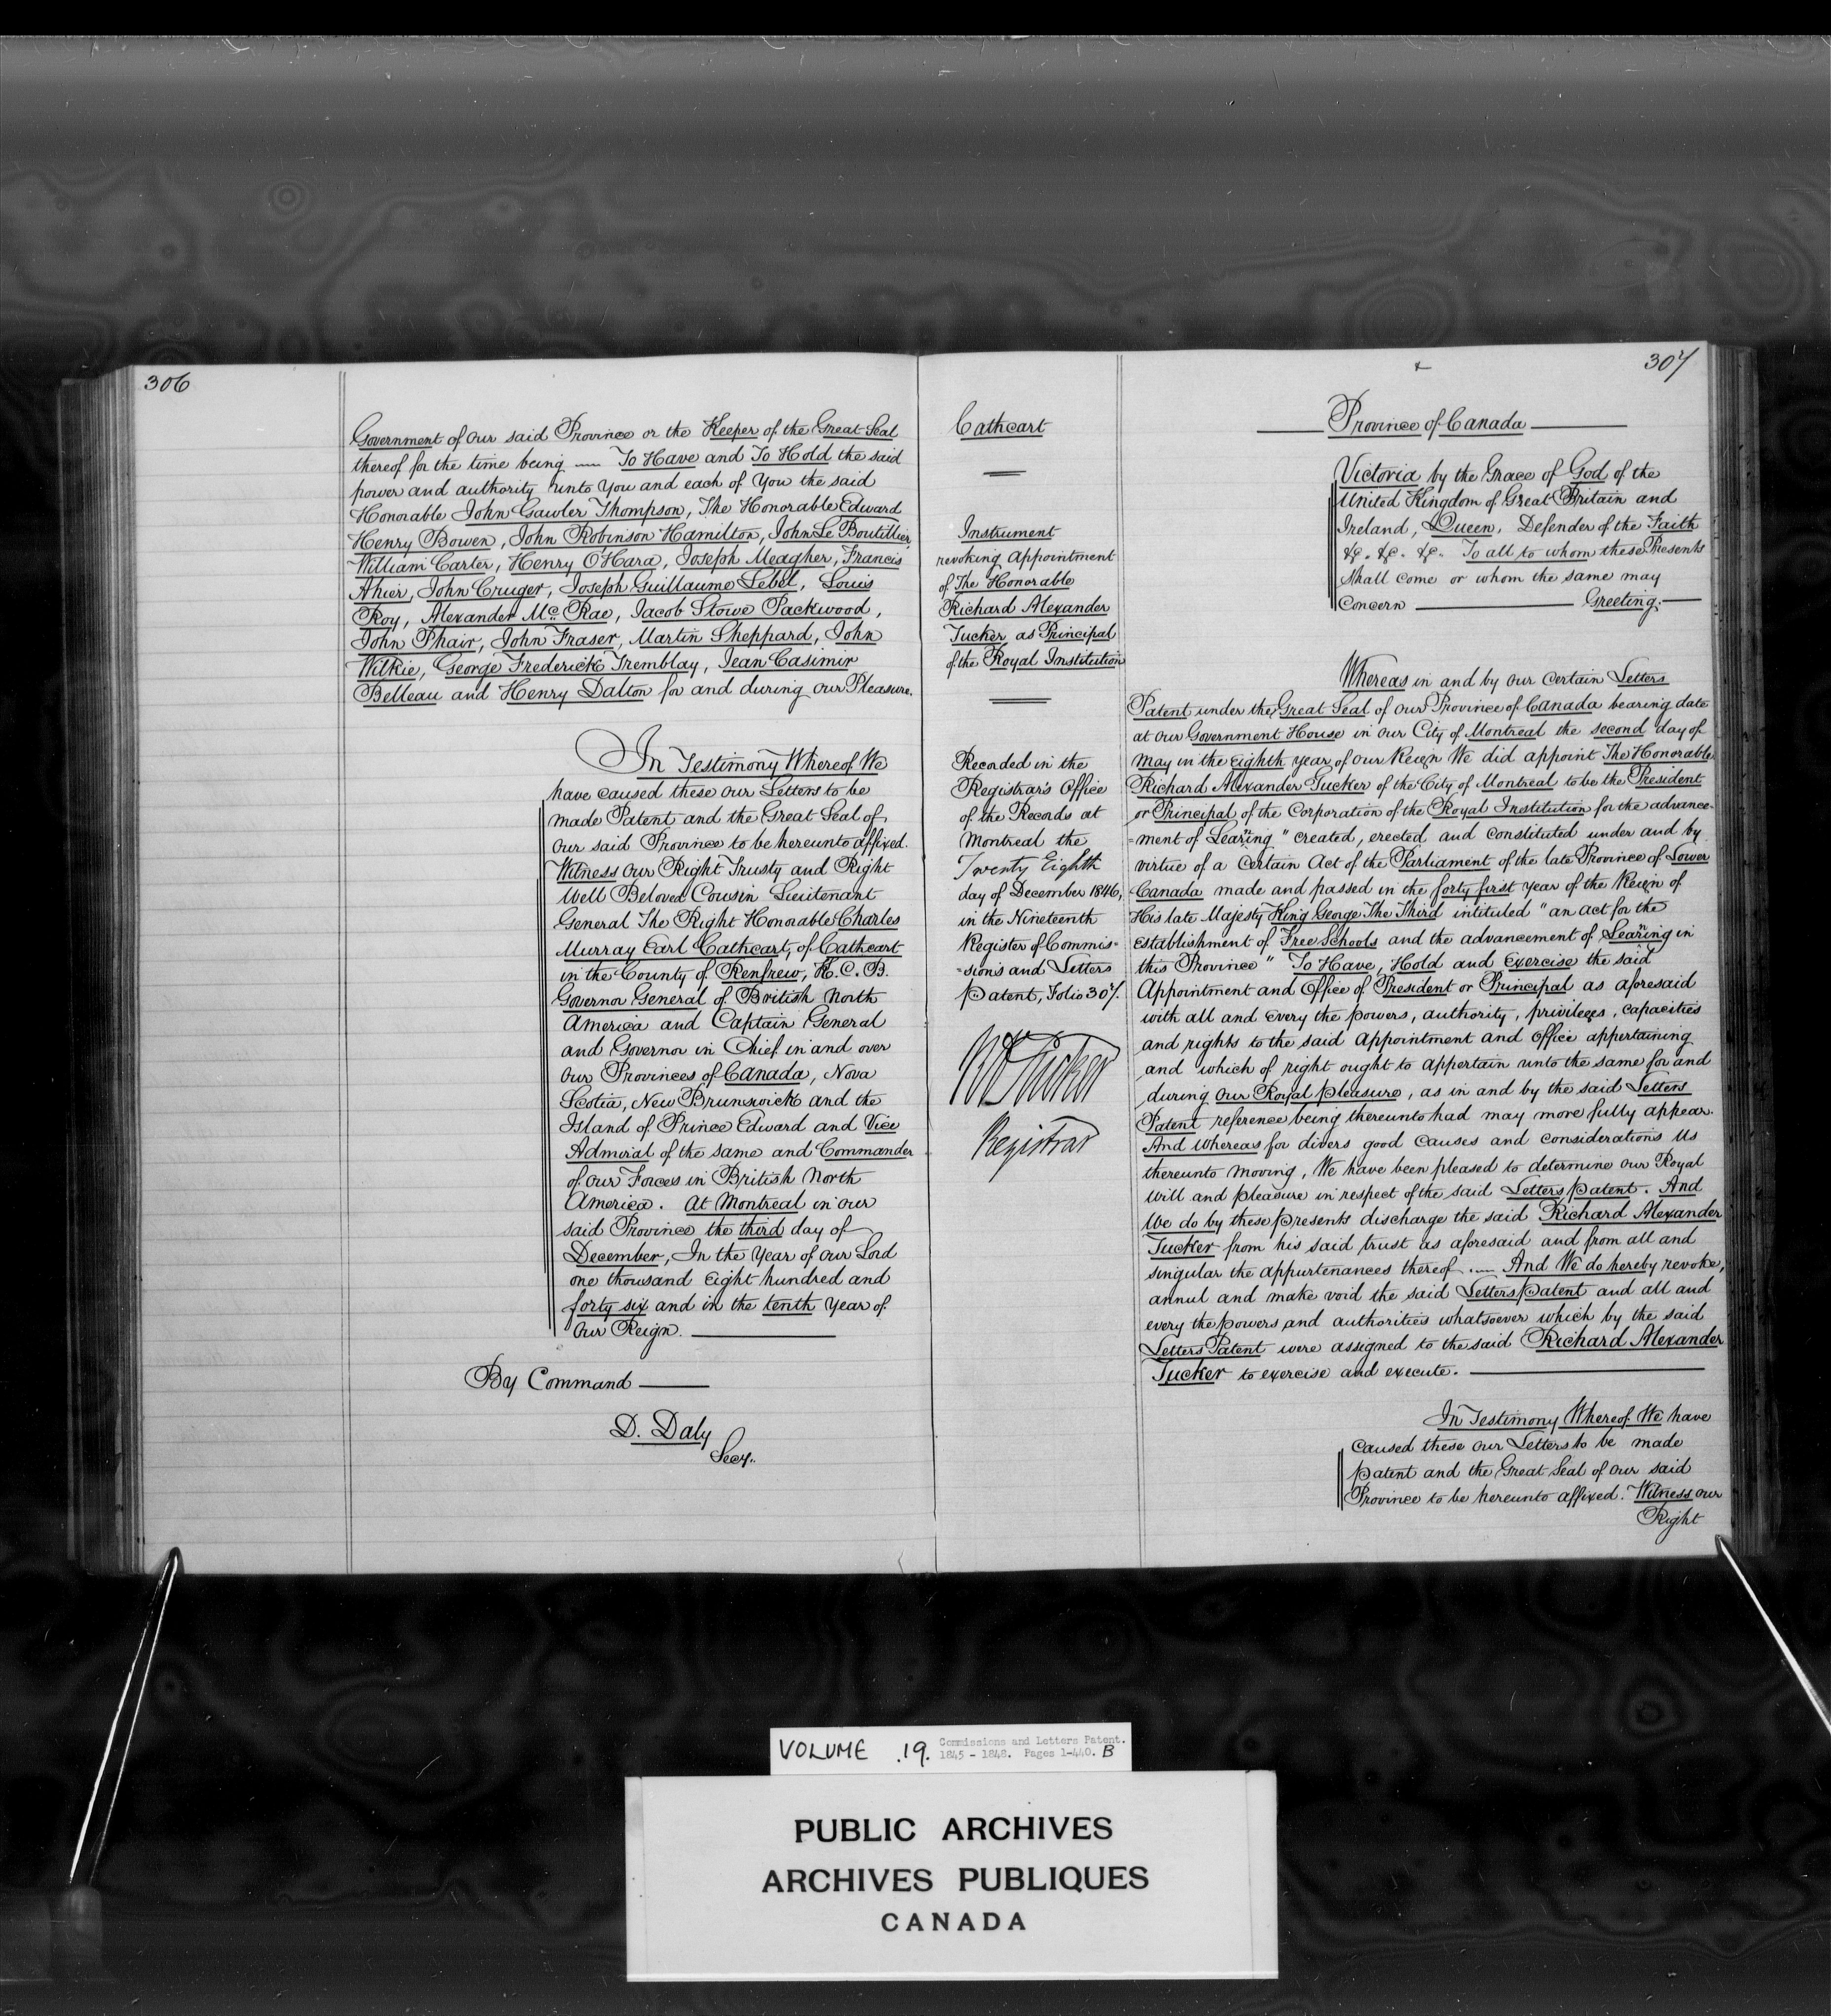 306
Government of Our said Province or the Keeper of the Great Seal
thereof for the time being — To Have and To Hold the said
power and authority unto You and each of You the said
Honorable John Gawler Thompson, The Honorable Edward
Henry Bowen, John Robinson Hamilton, John Le Boutillier,
William Carter, Henry O'Hara, Joseph Meagher, Francis
Ahier, John Cruger, Joseph Guillaume Lebel, Louis
Roy, Alexander Mc Rae, Jacob Stowe Packwood,
John Phair, John Fraser, Martin Sheppard, John
Wilkie, George Frederick Tremblay, Jean Casimir
Belleau and Henry Dalton for and during our Pleasure.
In Testimony Whereof We
have caused these our Letters to be
made Patent and the Great Seal of
Our said Province to be hereunto affixed.
Witness Our Right Trusty and Right
Well Beloved Cousin Lieutenant
General The Right Honorable Charles
Murray Earl Cathcart, of Cathcart
in the County of Renfrew, K.C.B.
Governor General of British North
America and Captain General
and Governor in Chief in and over
Our Provinces of Canada, Nova
Scotia, New Brunswick and the
Island of Prince Edward and Vice
Admiral of the same and Commander
of our Forces in British North
America. At Montreal in our
said Province the third day of
December, In the Year of our Lord
one thousand Eight hundred and
forty six and in the tenth Year of
Our Reign.
By Command
D. Daly
Secy.
307
Cathcart
Instrument
revoking Appointment
of The Honorable
Richard Alexander
Tucker as Principal
of the Royal Institution
Recorded in the
Registrar's Office
of the Records at
Montreal the
Twenty Eighth
day of December 1846,
in the Nineteenth
Register of Commis-
-sions and Letters
Patent, Folio 307.
RATucker
Registrar
Province of Canada
Victoria by the Grace of God of the
United Kingdom of Great Britain and
Ireland, Queen, Defender of the Faith
&c. &c. &c. To all to whom these Presents
shall come or whom the same may
Concern Greeting:
Whereas in and by our Certain Letters
Patent under the Great Seal of our Province of Canada bearing date
at our Government House in our City of Montreal the second day of
May in the Eighth year of our Reign We did appoint The Honorable
Richard Alexander Tucker of the City of Montreal to be the President
or Principal of the Corporation of the Royal Institution for the advance-
-ment of Learning" created, erected and constituted under and by
virtue of a Certain Act of the Parliament of the late Province of Lower
Canada made and passed in the forty first year of the Reign of
His late Majesty King George The Third intituled "an act for the
establishment of Free Schools and the advancement of Learning in
this Province" To Have, Hold and Exercise the said
Appointment and Office of President or Principal as aforesaid
with all and every the powers, authority, privileges, capacities
and rights to the said Appointment and Office appertaining
and which of right ought to appertain unto the same for and
during Our Royal Pleasure, as in and by the said Letters
Patent reference being thereunto had may more fully appear.
And Whereas for divers good causes and considerations Us
thereunto moving, We have been pleased to determine our Royal
will and pleasure in respect of the said Letters Patent. And
We do by these presents discharge the said Richard Alexander
Tucker from his said trust as aforesaid and from all and
singular the appurtenances thereof. — And We do hereby revoke,
annul and make void the said Letters Patent and all and
every the powers and authorities whatsoever which by the said
Letters Patent were assigned to the said Richard Alexander
Tucker to exercise and execute.
In Testimony Whereof We have
caused these our Letters to be made
Patent and the Great Seal of our said
Province to be hereunto affixed. Witness our
Right
VOLUME .19. Commissions and Letters Patent.
1845 - 1848. Pages 1-440. B
PUBLIC ARCHIVES
ARCHIVES PUBLIQUES
CANADA